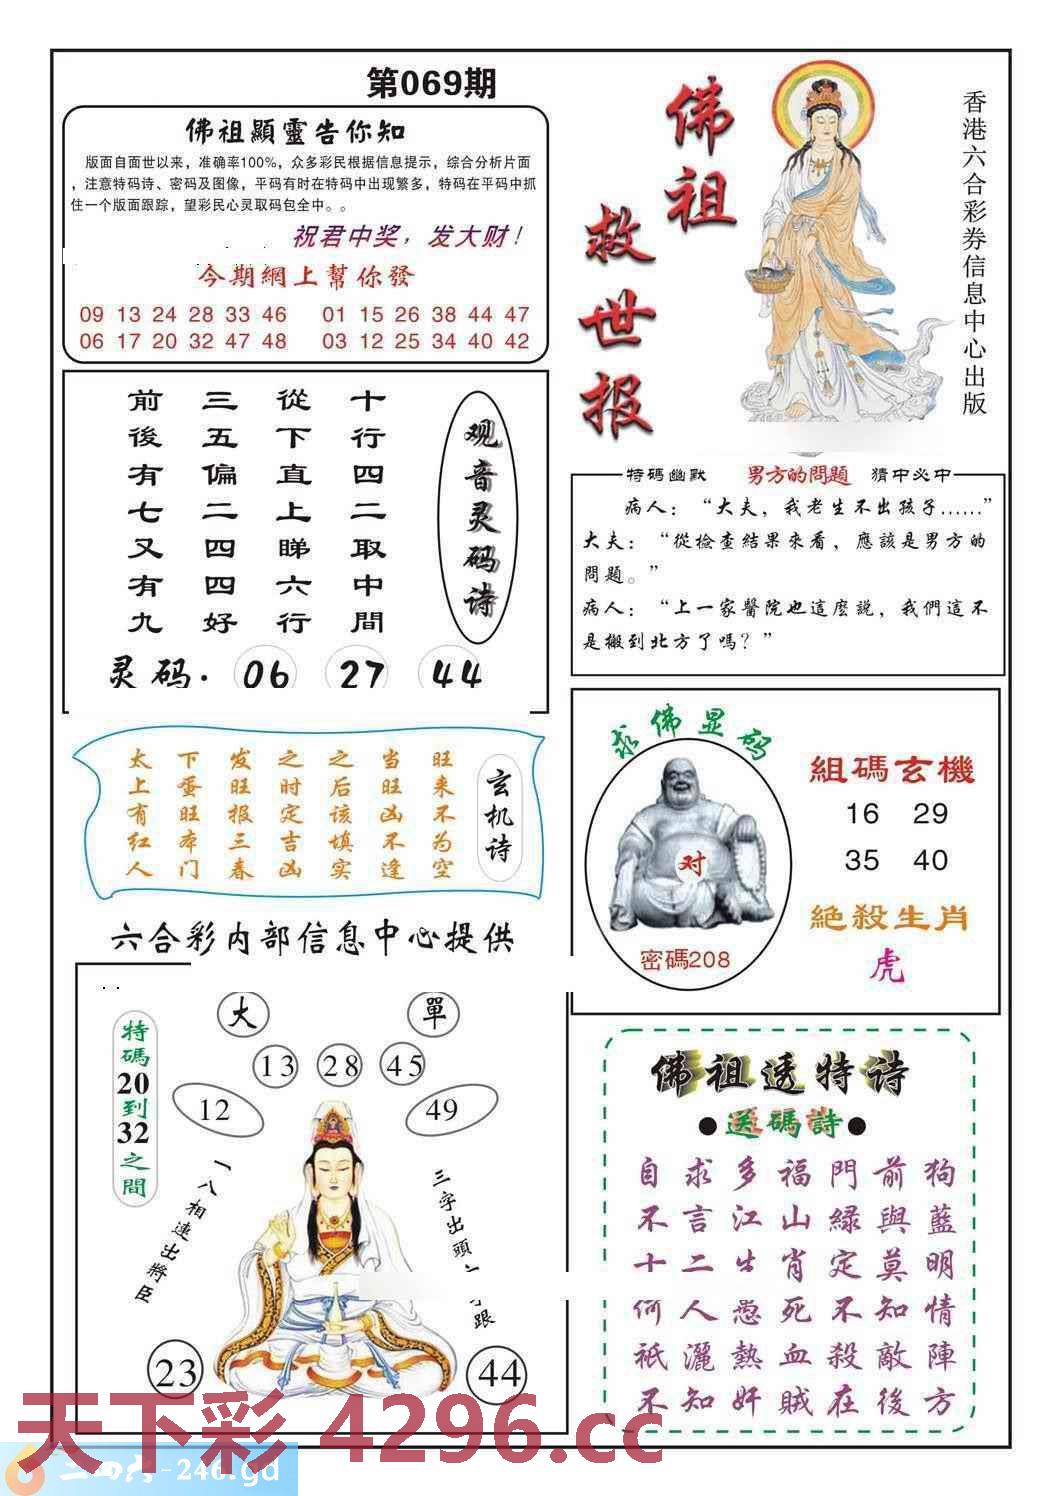 第069期
佛祖顯靈告你知
版面自面世以来，准确率100%，众多彩民根据信息提示，综合分析片面
，注意特码诗、密码及图像，平码有时在特码中出现繁多，特码在平码中抓
住一个版面跟踪，望彩民心灵取码包全中。。
祝君中奖，发大财！
今期網上幫你發
09 13 24 28 33 46 01 15 26 38 44 47
06 17 20 32 47 48 03 12 25 34 40 42
佛祖
救世报
香港六合彩券信息中心出版
观音灵码诗
十行四二取中間
從下直上睇六行
三五偏二四四好
前後有七又有九
灵码. 06 27 44
特碼幽默 男方的問題 猜中必中
病人：“大夫，我老生不出孩子......”
大夫：“從檢查結果來看，應該是男方的
問題。”
病人：“上一家醫院也這麽説，我們這不
是搬到北方了嗎？”
玄机诗
旺来不为空
当旺凶不逢
之后该填实
之时定吉凶
发旺报三春
下蛋旺本门
太上有红人
求佛显码
对
密碼208
組碼玄機
16 29
35 40
絕殺生肖
虎
六合彩内部信息中心提供
特碼20到32之間
大 單
13 28 45
12 49
一八相連出將臣
三字出頭
跟
23 44
佛祖透特诗
●送碼詩●
自求多福門前狗
不言江山緑與藍
十二生肖定莫明
何人愚死不知情
祇灑熱血殺敵陣
不知奸賊在後方
天下彩 4296.cc
二四六-246.gd